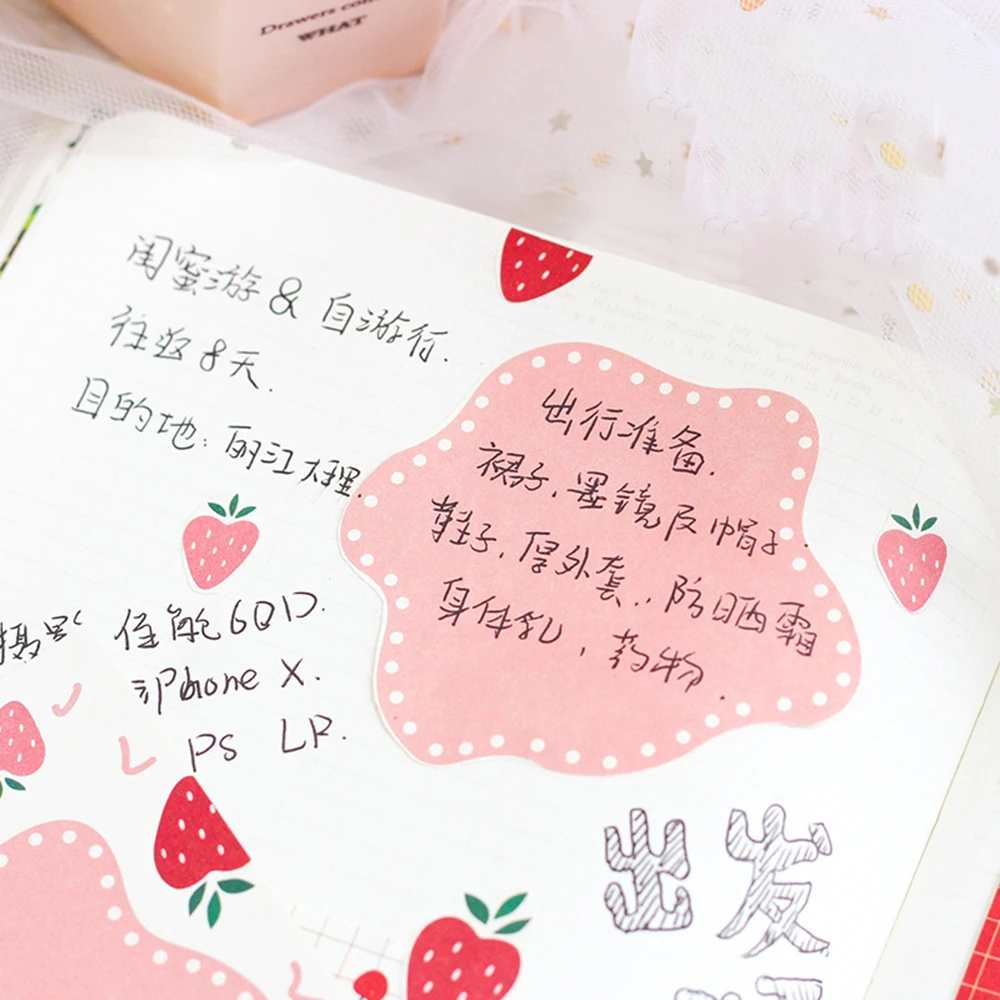 WHAT
闺蜜游 & 自游行.
往返8天.
目的地: 丽江大理.
出行准备.
裙子, 墨镜及帽子.
鞋子, 厚外套, 防晒霜
身体乳, 药物.
佳能60D.
iPhone X.
PS LR.
出发